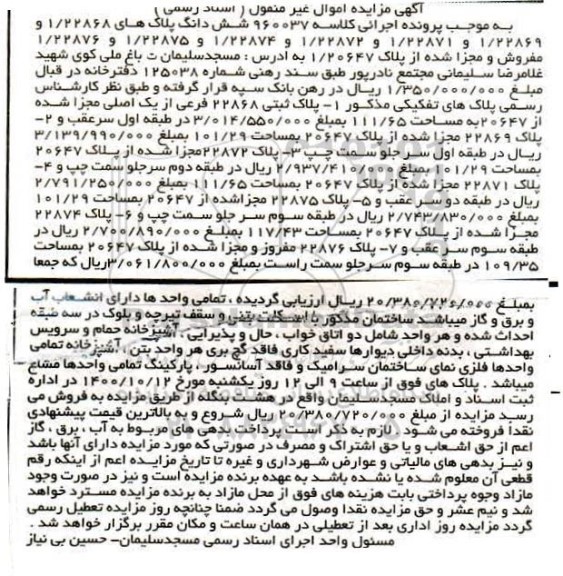 آگهی مزایده اموال غیر منقول ( اسناد رسمی )
به موجب پرونده اجرائی کلاسه ۹۶۰۰۳۷ شش دانگ پلاک های ۱/۲۲۸۶۸ و
۱/۲۲۸۶۹ و ۱/۲۲۸۷۱ و ۱/۲۲۸۷۲ و ۱/۲۲۸۷۴ و ۱/۲۲۸۷۵ و ۱/۲۲۸۷۶
مفروش و مجزا شده از پلاک ۱/۲۰۶۴۷ به ادرس : مسجدسلیمان ت باغ ملی کوی شهید
غلامرضا سلیمانی مجتمع نادرپور طبق سند رهنی شماره ۱۲۵۰۳۸ دفترخانه در قبال
مبلغ ۱/۳۵۰/۰۰۰/۰۰۰ ریال در رهن بانک سپه قرار گرفته و طبق نظر کارشناس
رسمی پلاک های تفکیکی مذکور ۱- پلاک ثبتی ۲۲۸۶۸ فرعی از یک اصلی مجزا شده
از ۲۰۶۴۷به مساحت ۱۱۱/۶۵ بمبلغ ۳/۰۱۴/۵۵۰/۰۰۰ در طبقه اول سرعقب و ۲-
پلاک ۲۲۸۶۹ مجزا شده از پلاک ۲۰۶۴۷ بمساحت ۱۰۱/۲۹ بمبلغ ۳/۱۳۹/۹۹۰/۰۰۰
ریال در طبقه اول سر جلو سمت چپ ۳- پلاک ۲۲۸۷۲مجزا شده از پلاک ۲۰۶۴۷
بمساحت ۱۰۱/۲۹ بمبلغ ۲/۹۳۷/۴۱۰/۰۰۰ ریال در طبقه دوم سرجلو سمت چپ و ۴-
پلاک ۲۲۸۷۱ مجزا شده از پلاک ۲۰۶۴۷ بمساحت ۱۱۱/۶۵ بمبلغ ۲/۷۹۱/۲۵۰/۰۰۰
ریال در طبقه دو سر عقب و ۵- پلاک ۲۲۸۷۵ مجزاشده از ۲۰۶۴۷ بمساحت ۱۰۱/۲۹
بمبلغ ۲/۷۴۳/۸۳۰/۰۰۰ ریال در طبقه سوم سر جلو سمت چپ و ۶- پلاک ۲۲۸۷۴
مجزا شده از پلاک ۲۰۶۴۷ بمساحت ۱۱۷/۴۳ بمبلغ ۲/۷۰۰/۸۹۰/۰۰۰ ریال در
طبقه سوم سر عقب و ۷- پلاک ۲۲۸۷۶ مفروز و مجزا شده از پلاک ۲۰۶۴۷ بمساحت
۱۰۹/۳۵ در طبقه سوم سرجلو سمت راست بمبلغ ۳/۰۶۱/۸۰۰/۰۰۰ریال که جمعا
بمبلغ ۲۰/۳۸۰/۷۲۰/۰۰۰ ریال ارزیابی گردیده ، تمامی واحد ها دارای انشعاب آب
و برق و گاز میباشد ساختمان مذکور با اسکلت بتنی و سقف تیرچه و بلوک در سه طبقه
احداث شده و هر واحد شامل دو اتاق خواب ، حال و پذیرایی ، آشپزخانه حمام و سرویس
بهداشتی ، بدنه داخلی دیوارها سفید کاری فاقد گچ بری هر واحد بتن ، آشپزخانه تمامی
واحدها فلزی نمای ساختمان سرامیک و فاقد آسانسور ، پارکینگ تمامی واحدها مشاع
میباشد . پلاک های فوق از ساعت ۹ الی ۱۲ روز یکشنبه مورخ ۱۴۰۰/۱۰/۱۲ در اداره
ثبت اسناد و املاک مسجدسلیمان واقع در هشت بنگله از طریق مزایده به فروش می
رسد مزایده از مبلغ ۲۰/۳۸۰/۷۲۰/۰۰۰ ریال شروع و به بالاترین قیمت پیشنهادی
نقدا فروخته می شود . لازم به ذکر است پرداخت بدهی های مربوط به آب ، برق ، گاز
اعم از حق اشعاب و یا حق اشتراک و مصرف در صورتی که مورد مزایده دارای آنها باشد
و نیز بدهی های مالیاتی و عوارض شهرداری و غیره تا تاریخ مزایده اعم از اینکه رقم
قطعی آن معلوم شده یا نشده باشد به عهده برنده مزایده است و نیز در صورت وجود
مازاد وجوه پرداختی بابت هزینه های فوق از محل مازاد به برنده مزایده مسترد خواهد
شد و نیم عشر و حق مزایده نقدا وصول می گردد ضمنا چنانچه روز مزایده تعطیل رسمی
گردد مزایده روز اداری بعد از تعطیلی در همان ساعت و مکان مقرر برگزار خواهد شد .
مسئول واحد اجرای اسناد رسمی مسجدسلیمان- حسین بی نیاز